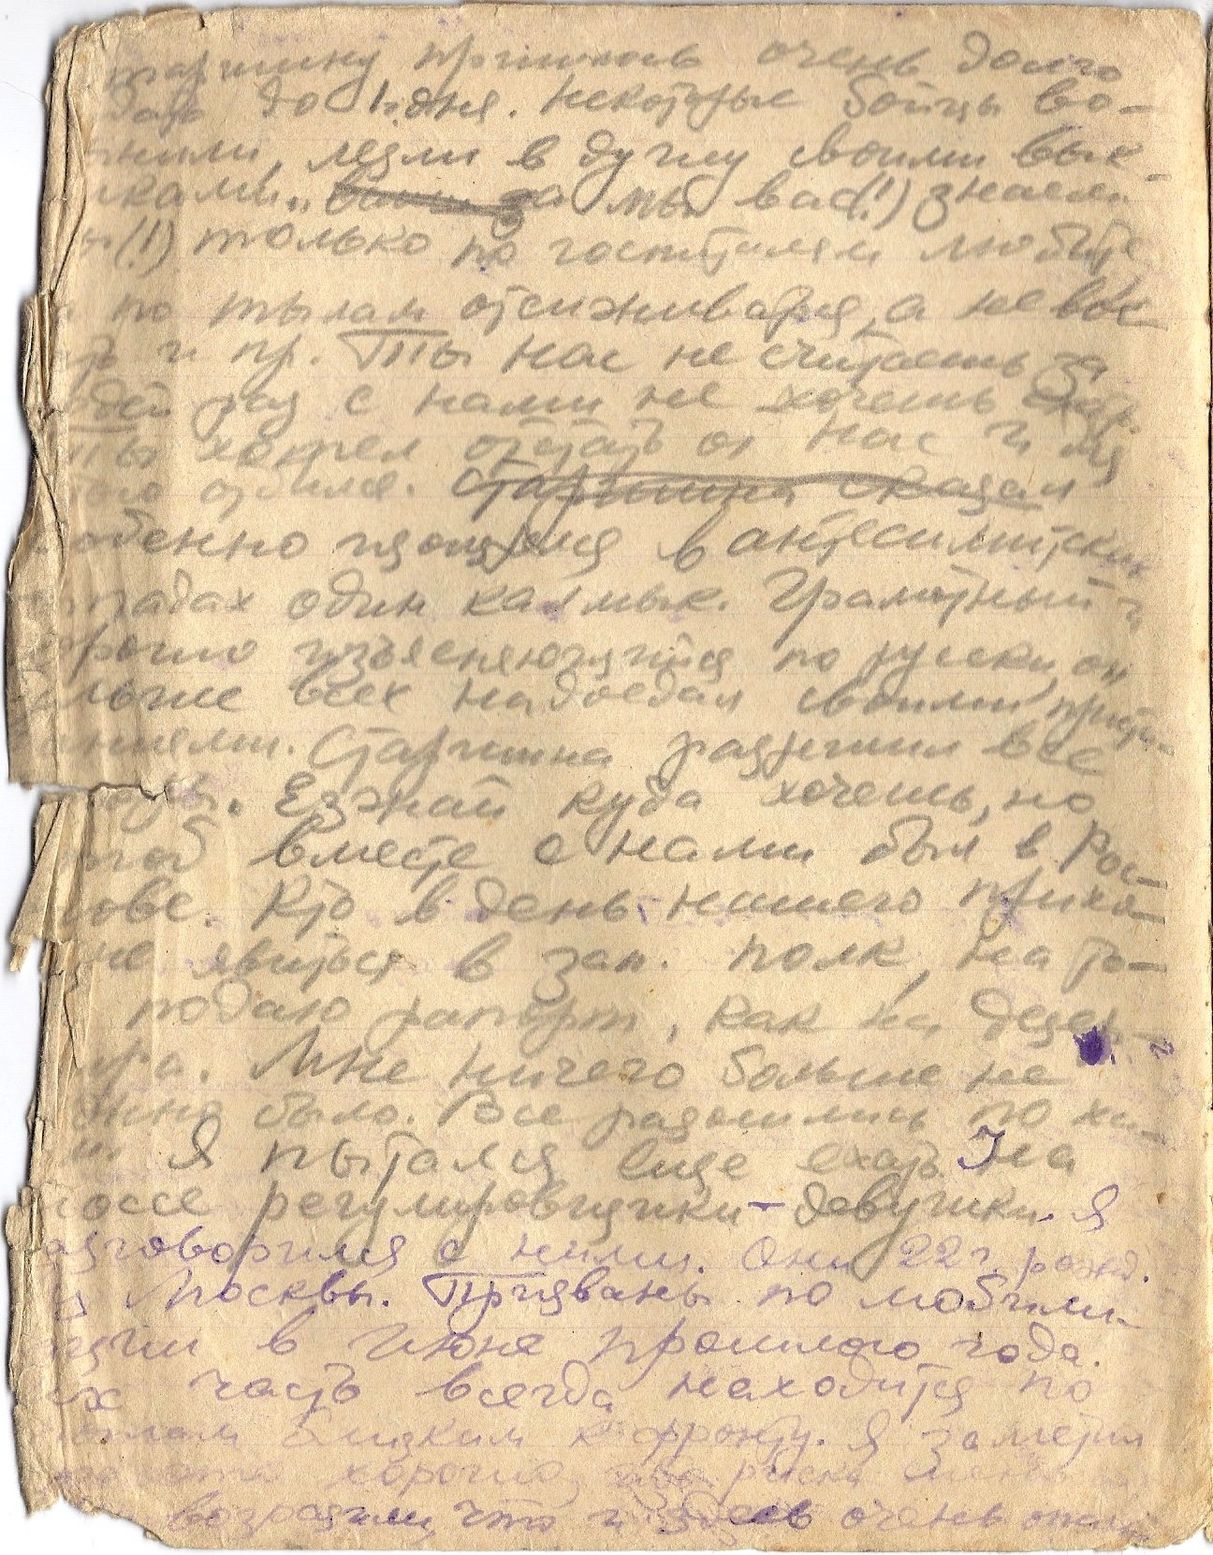 старшину пришлось очень долго
ждать до 1 дня. Некоторые бойцы во-
лезли в душу своими вык-
ками „ да мы вас(!) знаем
вы(!) только по госпиталям любите
и по тылам отсиживаться, а не вое
и пр. Ты нас не считаешь за
людей раз с нами не хочешь
ты хотел отстать от нас и для
того отбился. Старшина сказал
особенно изощрялся в антесимитских
один калмык. Грамотный и
хорошо изъясняющийся по русски, он
больше всех надоедал своими прита-
ниями. Старшина разрешил все
Езжай куда хочешь, но
чтоб вместе с нами был в Рос-
тове. Кто в день нашего прихо-
не явиться в зап. полк, на то-
подаю рапорт, как на дезер-
ира. Мне ничего больше не
нужно было. Все разошлись по ха-
Я пытался еще ехать На
шоссе регулировщики – девушки. Я
разговорился с ними. Они 22 г. рожд.
из Москвы. Призваны по мобили-
зации в июне прошлого года.
Их часть всегда находится по
тылам близким к фронту. Я заметил
что это хорошо,
возразили, что и здесь очень опас